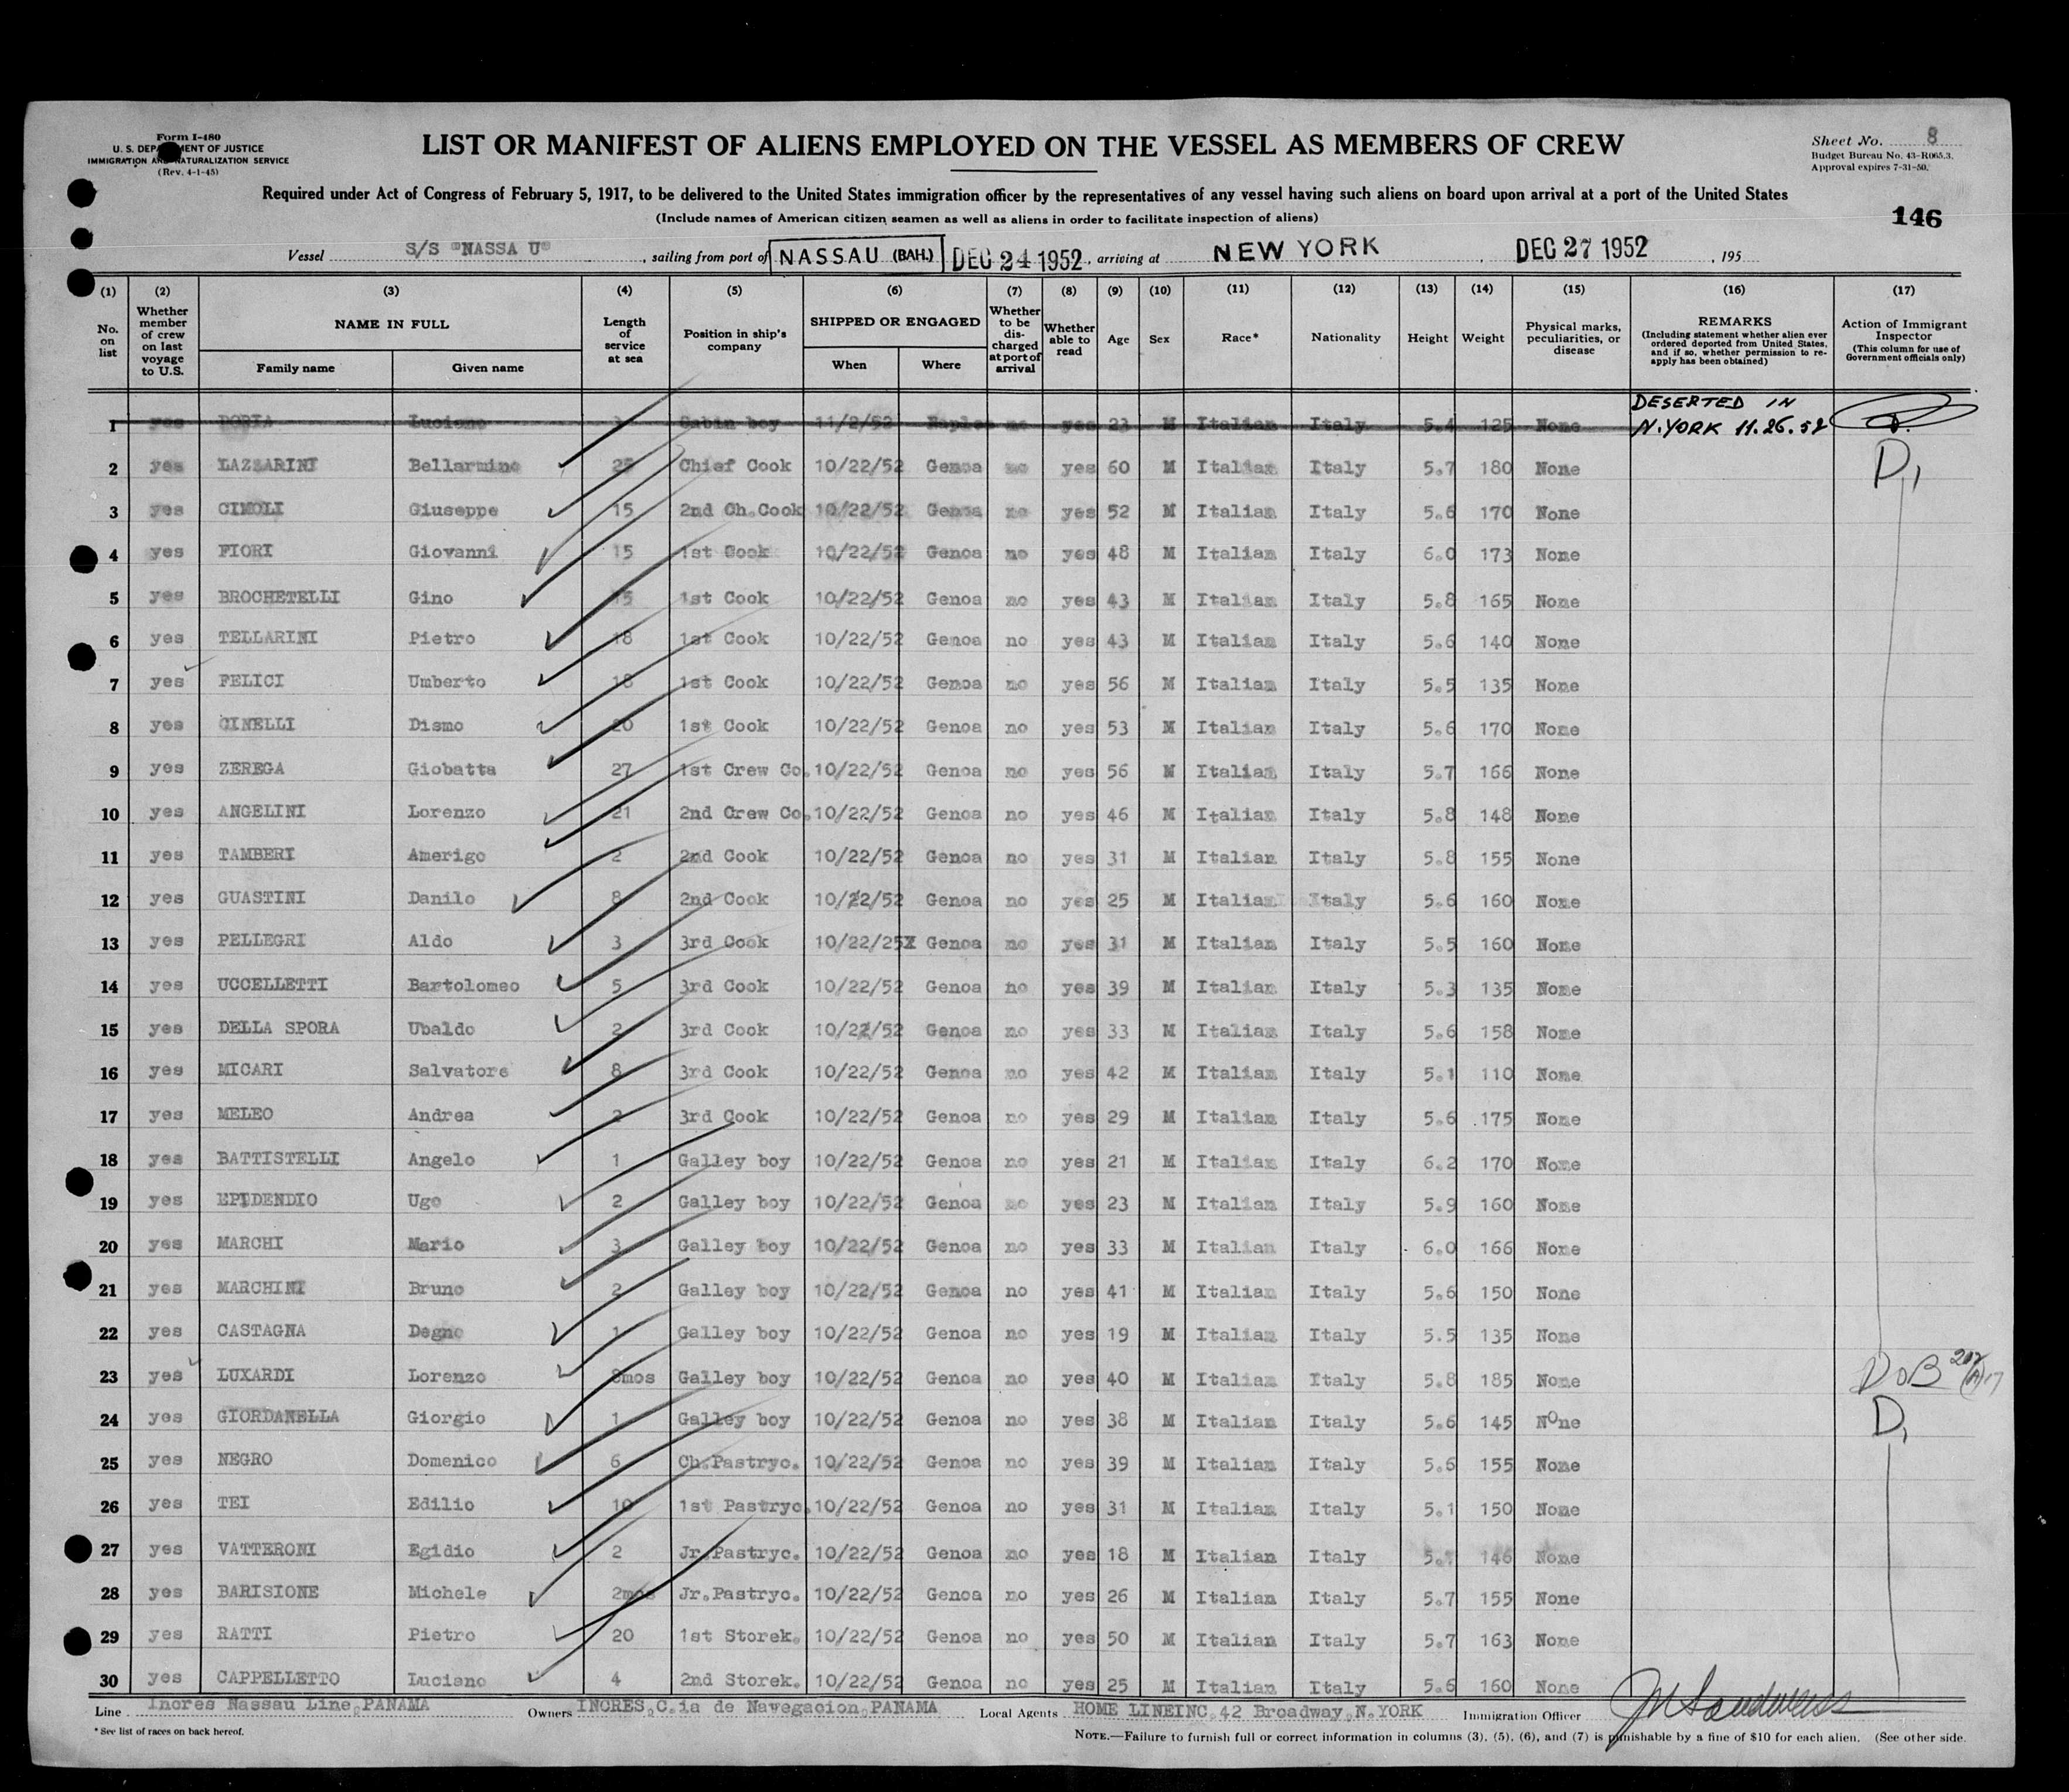 Form I-480
U. S. DEPARTMENT OF JUSTICE
IMMIGRATION AND NATURALIZATION SERVICE
(Rev. 4-1-45)
LIST OR MANIFEST OF ALIENS EMPLOYED ON THE VESSEL AS MEMBERS OF CREW
Sheet No. 8
Budget Bureau No. 43-R065.3.
Approval expires 7-31-50.
Required under Act of Congress of February 5, 1917, to be delivered to the United States immigration officer by the representatives of any vessel having such aliens on board upon arrival at a port of the United States
(Include names of American citizen seamen as well as aliens in order to facilitate inspection of aliens)
146
Vessel S/S "NASSA U" , sailing from port of NASSAU (BAH.) DEC 24 1952 , arriving at NEW YORK , DEC 27 1952 , 195
(1) (2) (3) (4) (5) (6) (7) (8) (9) (10) (11) (12) (13) (14) (15) (16) (17)
No. on list Whether member of crew on last voyage to U.S. NAME IN FULL Family name Given name Length of service at sea Position in ship's company SHIPPED OR ENGAGED When Where Whether to be discharged at port of arrival Whether able to read Age Sex Race* Nationality Height Weight Physical marks, peculiarities, or disease REMARKS (Including statement whether alien ever ordered deported from United States, and if so, whether permission to reapply has been obtained) Action of Immigrant Inspector (This column for use of Government officials only)
1 yes DORIA Luciano Cabin boy 11/2/52 Naples no yes 23 M Italian Italy 5.4 125 None DESERTED IN N.YORK 11.26.52
2 yes LAZZARINI Bellarmino 25 Chief Cook 10/22/52 Genoa no yes 60 M Italian Italy 5.7 180 None D,
3 yes CIMOLI Giuseppe 15 2nd Ch.Cook 10/22/52 Genoa no yes 52 M Italian Italy 5.6 170 None
4 yes FIORI Giovanni 15 1st Cook 10/22/52 Genoa no yes 48 M Italian Italy 6.0 173 None
5 yes BROCHETELLI Gino 15 1st Cook 10/22/52 Genoa no yes 43 M Italian Italy 5.8 165 None
6 yes TELLARINI Pietro 18 1st Cook 10/22/52 Genoa no yes 43 M Italian Italy 5.6 140 None
7 yes FELICI Umberto 18 1st Cook 10/22/52 Genoa no yes 56 M Italian Italy 5.5 135 None
8 yes CINELLI Dismo 20 1st Cook 10/22/52 Genoa no yes 53 M Italian Italy 5.6 170 None
9 yes ZEREGA Giobatta 27 1st Crew Co. 10/22/52 Genoa no yes 56 M Italian Italy 5.7 166 None
10 yes ANGELINI Lorenzo 21 2nd Crew Co. 10/22/52 Genoa no yes 46 M Italian Italy 5.8 148 None
11 yes TAMBERI Amerigo 2 2nd Cook 10/22/52 Genoa no yes 31 M Italian Italy 5.8 155 None
12 yes GUASTINI Danilo 8 2nd Cook 10/22/52 Genoa no yes 25 M Italian Italy 5.6 160 None
13 yes PELLEGRI Aldo 3 3rd Cook 10/22/25X Genoa no yes 31 M Italian Italy 5.5 160 None
14 yes UCCELLETTI Bartolomeo 5 3rd Cook 10/22/52 Genoa no yes 39 M Italian Italy 5.3 135 None
15 yes DELLA SPORA Ubaldo 2 3rd Cook 10/22/52 Genoa no yes 33 M Italian Italy 5.6 158 None
16 yes MICARI Salvatore 8 3rd Cook 10/22/52 Genoa no yes 42 M Italian Italy 5.1 110 None
17 yes MELEO Andrea 2 3rd Cook 10/22/52 Genoa no yes 29 M Italian Italy 5.6 175 None
18 yes BATTISTELLI Angelo 1 Galley boy 10/22/52 Genoa no yes 21 M Italian Italy 6.2 170 None
19 yes EPIDENDIO Ugo 2 Galley boy 10/22/52 Genoa no yes 23 M Italian Italy 5.9 160 None
20 yes MARCHI Mario 3 Galley boy 10/22/52 Genoa no yes 33 M Italian Italy 6.0 166 None
21 yes MARCHINI Bruno 2 Galley boy 10/22/52 Genoa no yes 41 M Italian Italy 5.6 150 None
22 yes CASTAGNA Degno 1 Galley boy 10/22/52 Genoa no yes 19 M Italian Italy 5.5 135 None
23 yes LUXARDI Lorenzo 8mos Galley boy 10/22/52 Genoa no yes 40 M Italian Italy 5.8 185 None DOB
24 yes GIORDANELLA Giorgio 1 Galley boy 10/22/52 Genoa no yes 38 M Italian Italy 5.6 145 None D,
25 yes NEGRO Domenico 6 Ch.Pastryc. 10/22/52 Genoa no yes 39 M Italian Italy 5.6 155 None
26 yes TEI Edilio 10 1st Pastryc. 10/22/52 Genoa no yes 31 M Italian Italy 5.1 150 None
27 yes VATTERONI Egidio 2 Jr.Pastryc. 10/22/52 Genoa no yes 18 M Italian Italy 146 None
28 yes BARISIONE Michele 2mos Jr.Pastryc. 10/22/52 Genoa no yes 26 M Italian Italy 5.7 155 None
29 yes RATTI Pietro 20 1st Storek. 10/22/52 Genoa no yes 50 M Italian Italy 5.7 163 None
30 yes CAPPELLETTO Luciano 4 2nd Storek. 10/22/52 Genoa no yes 25 M Italian Italy 5.6 160 None
Line Incres Nassau Line,PANAMA Owners INCRES,C.ia de Navegacion,PANAMA Local Agents HOME LINEINC,42 Broadway,N.YORK Immigration Officer
* See list of races on back hereof.
NOTE.—Failure to furnish full or correct information in columns (3), (5), (6), and (7) is punishable by a fine of $10 for each alien. (See other side.